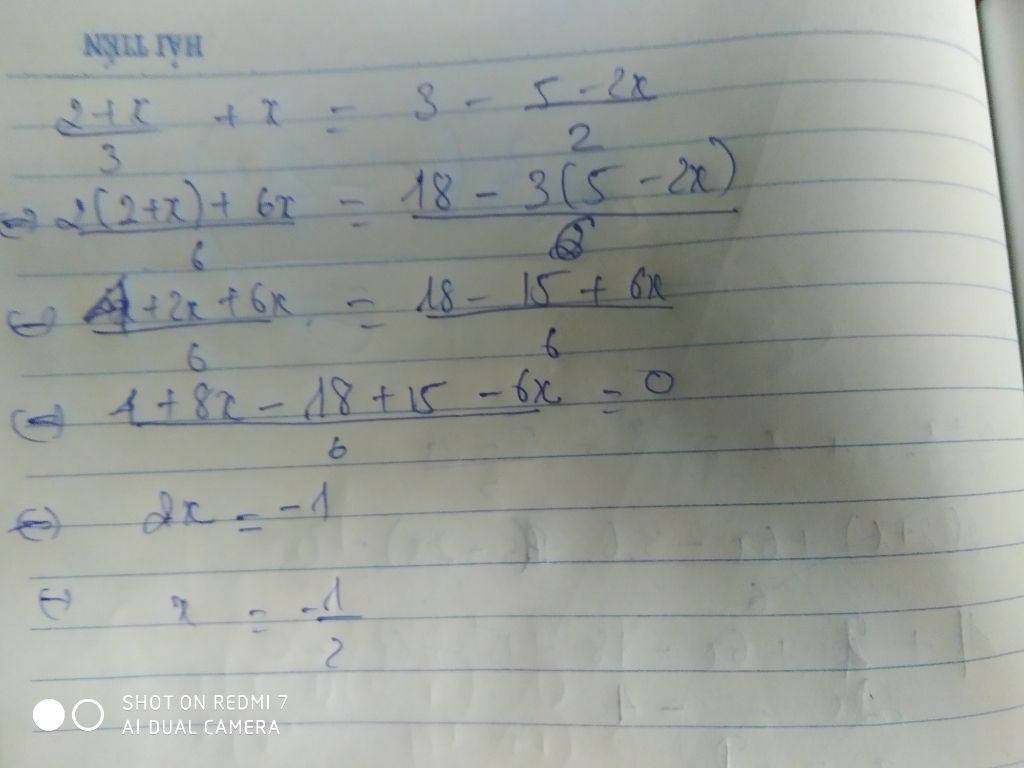 HẢI TIẾN
2+x/3 + x = 3 - 5-2x/2
⇔ 2(2+x)+6x/6 = 18-3(5-2x)/6
⇔ 4+2x+6x/6 = 18-15+6x/6
⇔ 4+8x-18+15-6x/6 = 0
⇔ 2x = -1
⇔ x = -1/2
SHOT ON REDMI 7
AI DUAL CAMERA